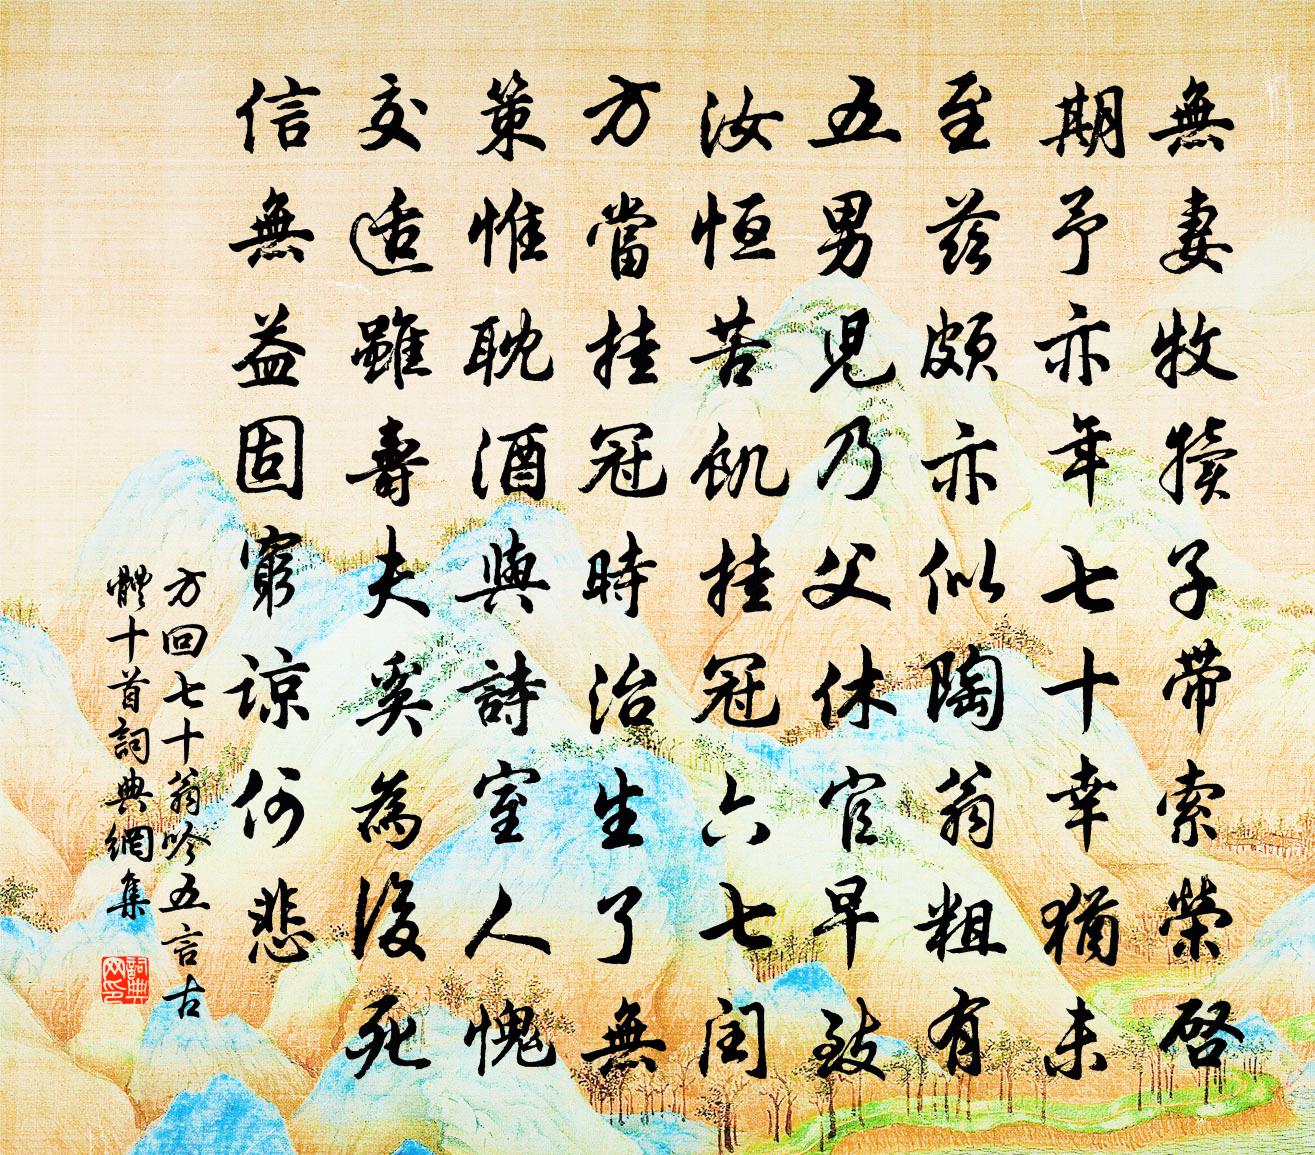 無妻牧犢子帶索榮啓
期予亦年七十幸猶未
至茲頗亦似陶翁粗有
五男兒乃父休官早致
汝恒苦飢挂冠六七閏
方當挂冠時治生了無
策惟耽酒與詩室人愧
交適雖壽夫奚為後死
信無益固窮諒何悲
方回七十翁吟五言古
體十首詞典網集